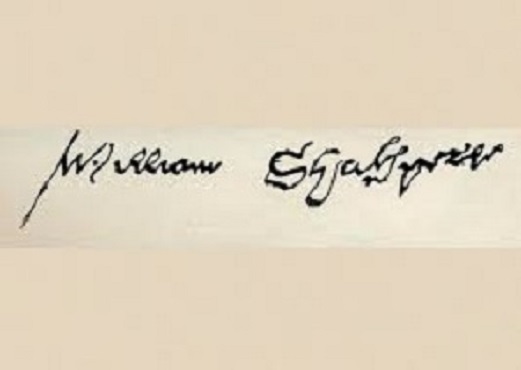 William Shakspere